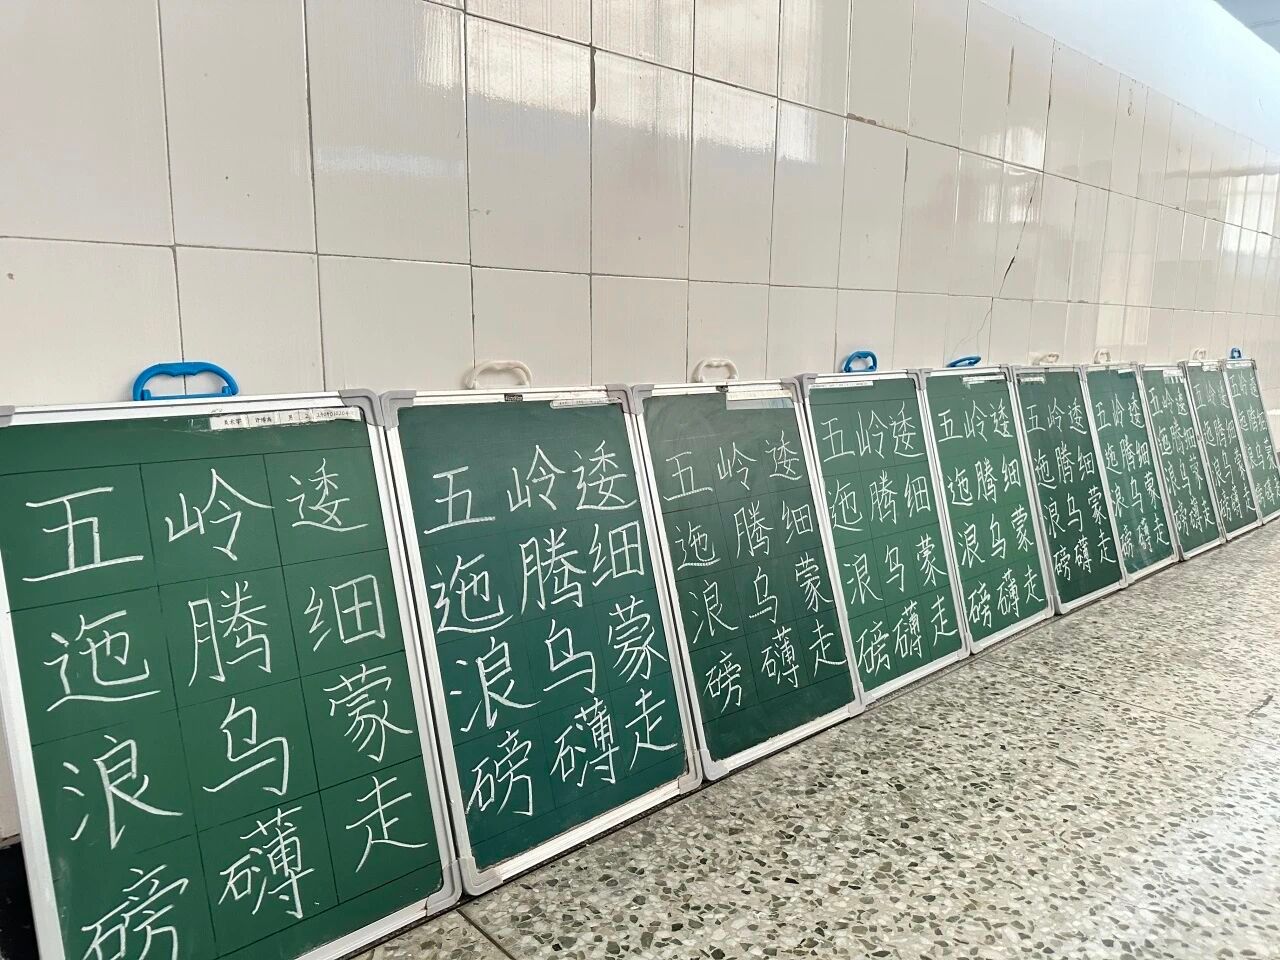 五岭逶
迤腾细
浪乌蒙
磅礴走
五岭逶
迤腾细
浪乌蒙
磅礴走
五岭逶
迤腾细
浪乌蒙
磅礴走
五岭逶
迤腾细
浪乌蒙
磅礴走
五岭逶
迤腾细
浪乌蒙
磅礴走
五岭逶
迤腾细
浪乌蒙
磅礴走
五岭逶
迤腾细
浪乌蒙
磅礴走
五岭逶
迤腾细
浪乌蒙
磅礴走